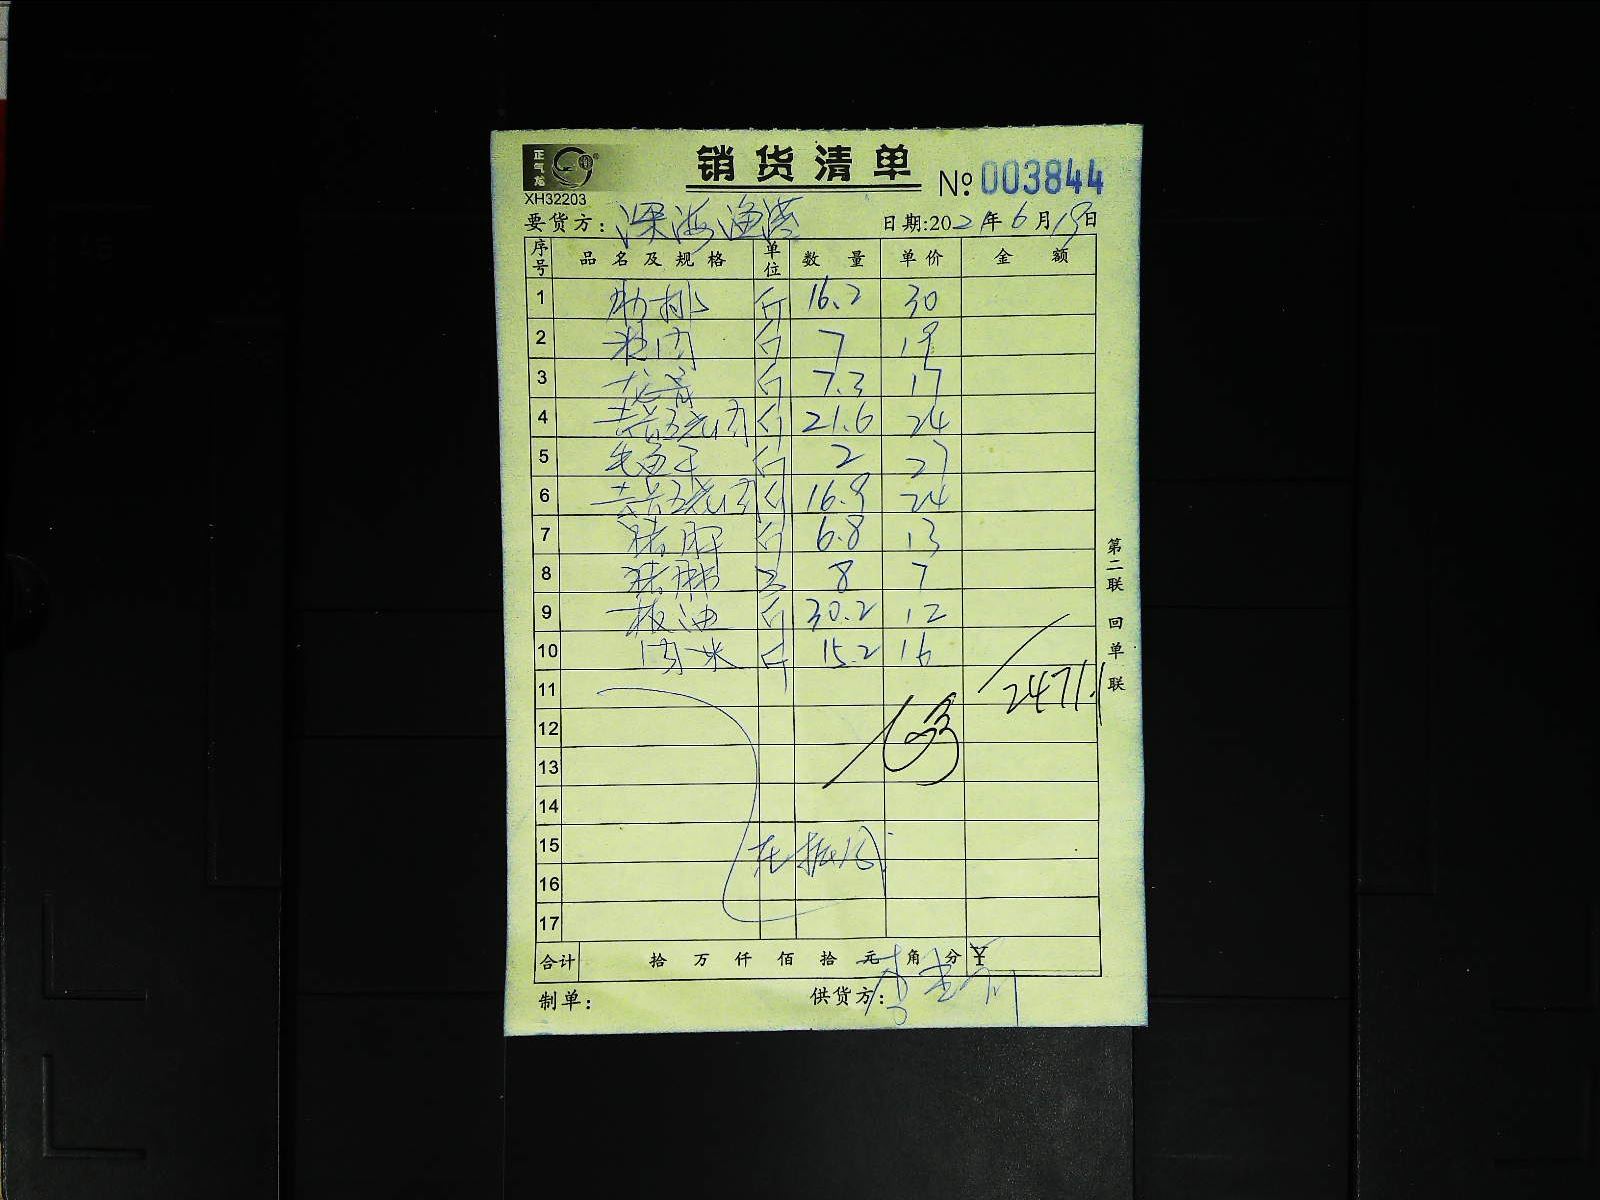 正气龙
XH32203
销货清单
№ 003844
要货方: 深海渔港 日期:2021年6月19日
序号 品名及规格 单位 数量 单价 金额
1 肋排 斤 16.2 30
2 斤 7 19
3 龙骨 斤 7.3 17
4 去骨五花肉 斤 21.6 24
5 斤 2 27
6 去骨五花肉 斤 16.9 24
7 猪肝 斤 6.8 13
8 猪 8 7
9 板油 斤 30.2 12
10 肉米 斤 15.2 16
11 2471.1
12
13
14
15
16
17
合计 拾 万 仟 佰 拾 元 角 分 ¥
制单: 供货方:
第二联 回单联